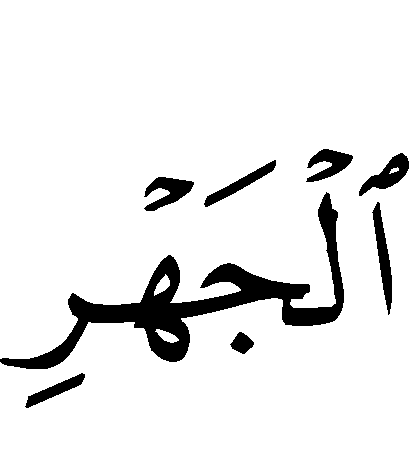 ٱلْجَهْرِ